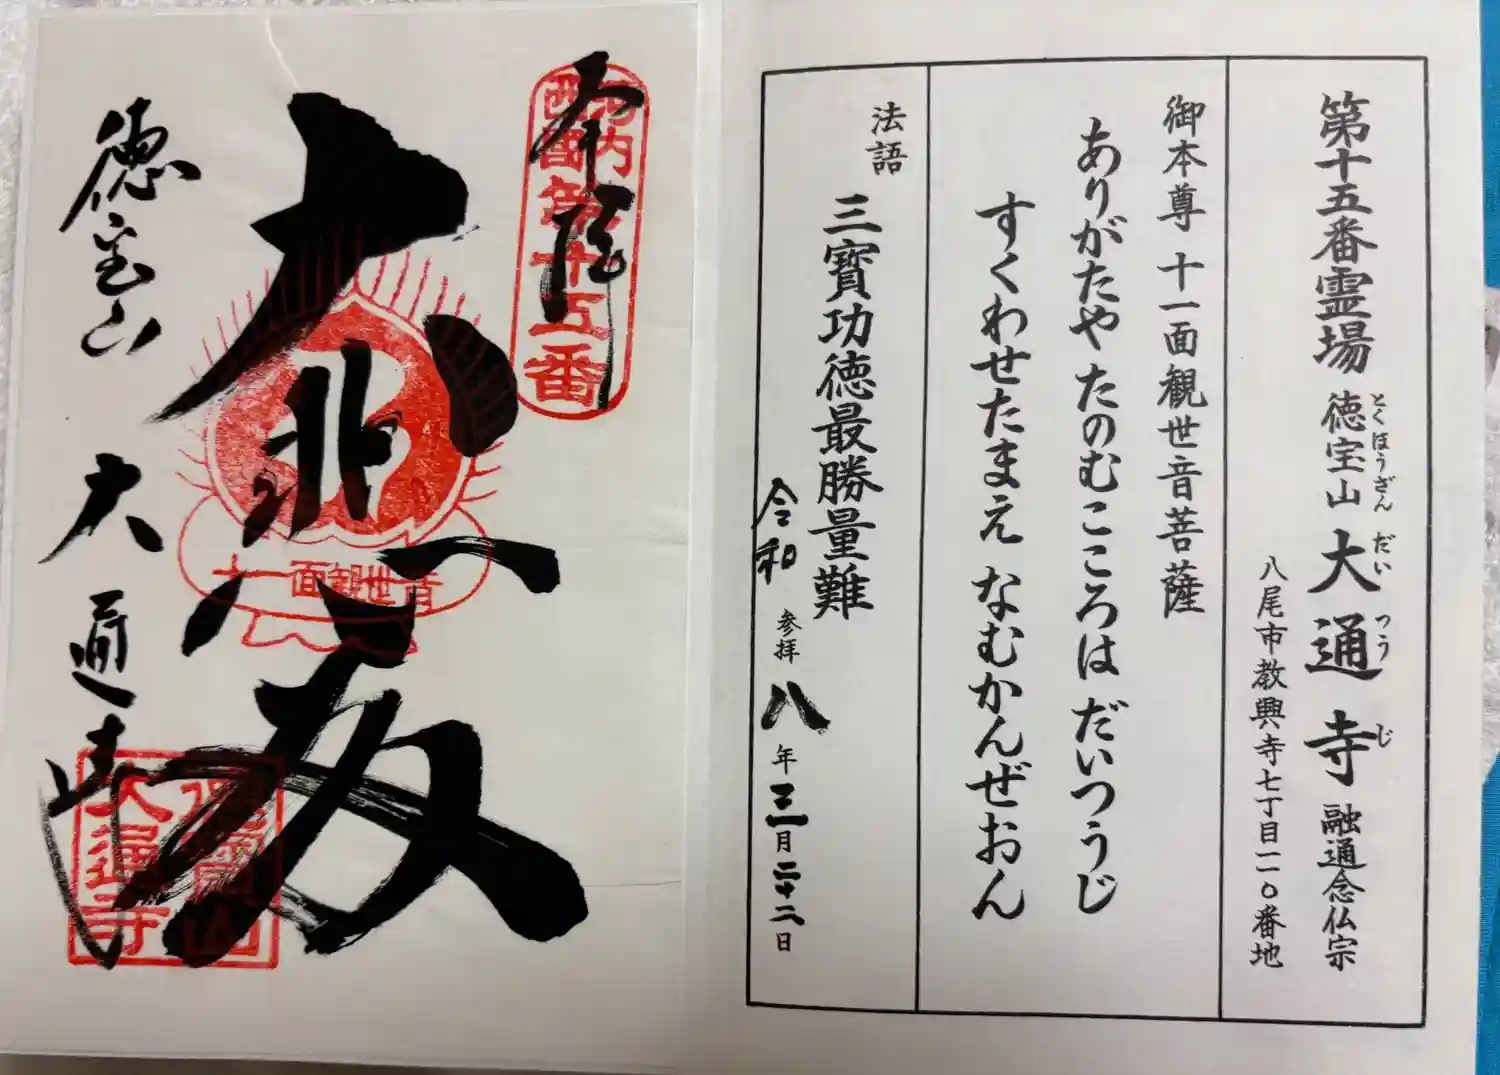 第十五番霊場 徳宝山 大通寺 融通念仏宗
とくほうざん だいつうじ
八尾市教興寺七丁目一一〇番地
御本尊 十一面観世音菩薩
ありがたや たのむこころは だいつうじ
すくわせたまえ なむかんぜおん
法語 三寳功徳最勝量難
令和 参拝 八年三月二十二日
奉拝
河内西國第十五番
大悲殿
十一面観世音
徳宝山 大通寺
大通寺